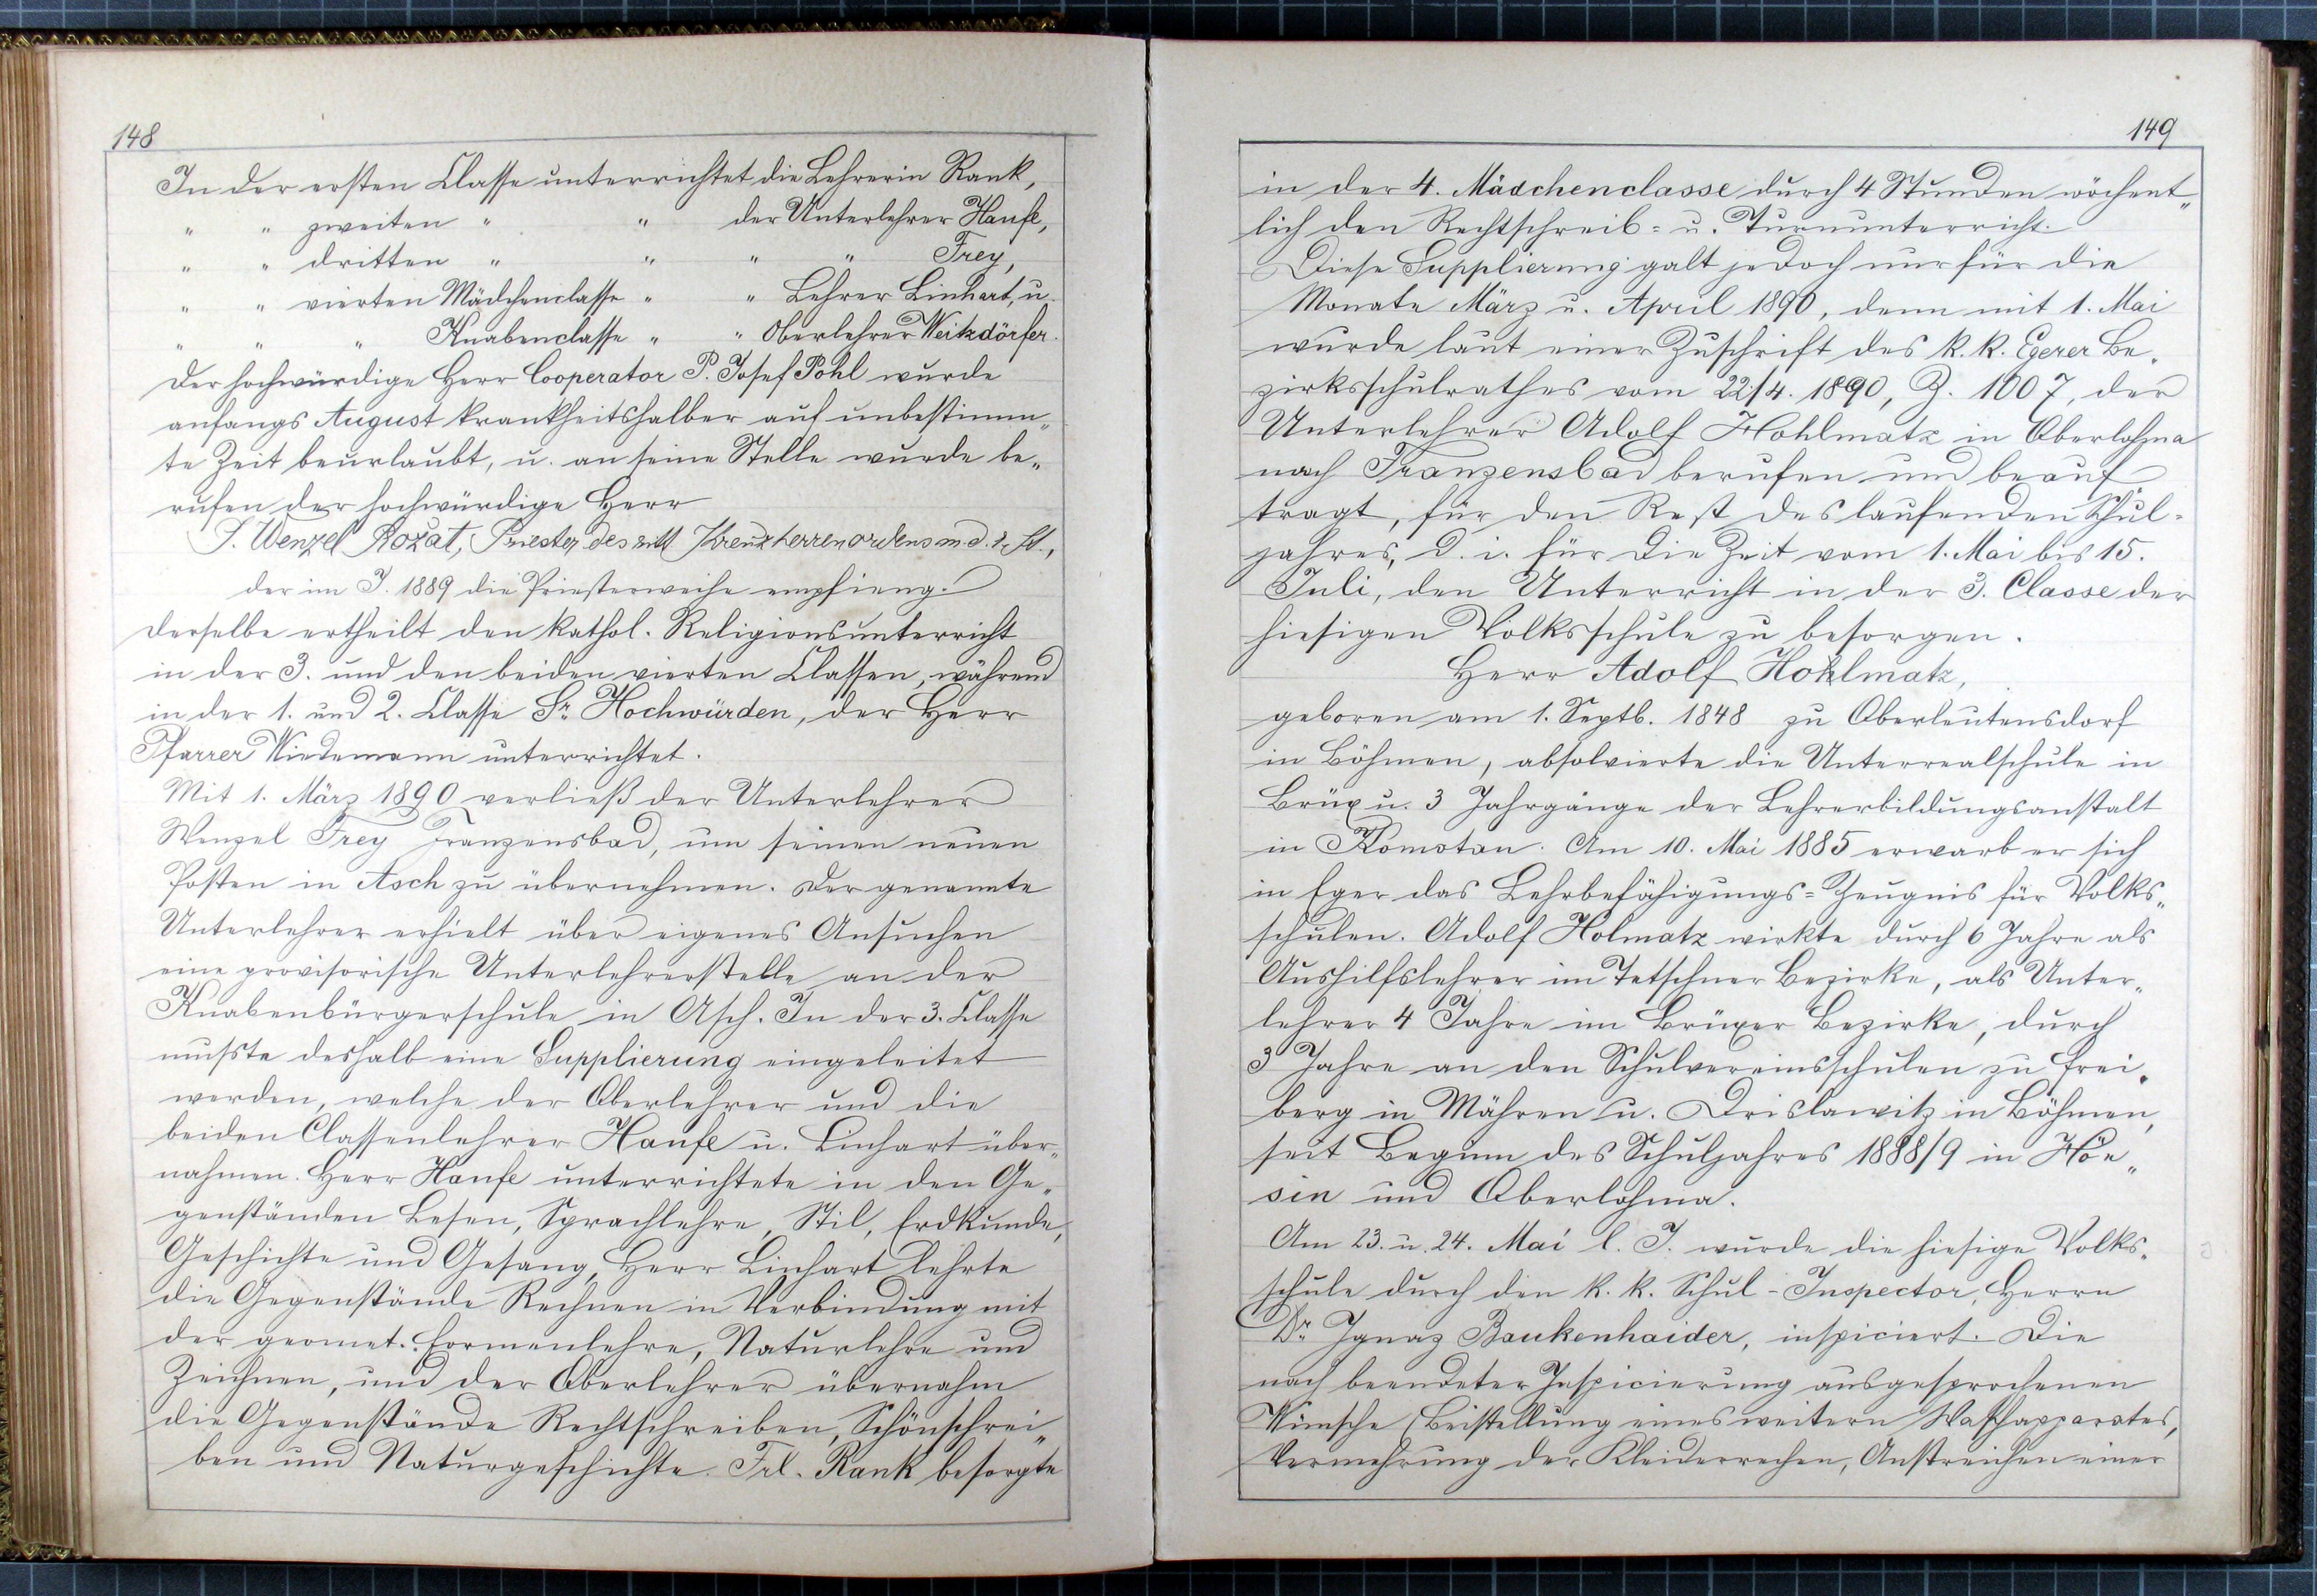 148
In der ersten Classe unterrichtet die Lehrerin Rank,
" " zweiten " " der Unterlehrer Haufe,
" " dritten " " " " Frey,
" " vierten Mädchenclasse " " Lehrer Linhart, u.
" " " Knabenclasse " " Oberlehrer Weitzdörfer.
Der hochwürdige Herr Cooperator P. Josef Pohl wurde
anfangs August krankheitshalber auf unbestimm„
te Zeit beurlaubt, u. an seine Stelle wurde be„
rufen der hochwürdige Herr
P. Wenzel Rožat, Priester des ritt Kreuzherrenordens m. d. r. St.,
der im J. 1889 die Priesterweihe empfieng.
Derselbe ertheilt den kathol. Religionsunterricht
in der 3. und den beiden vierten Classen, während
in der 1. und 2. Classe Sr. Hochwürden, der Herr
Pfarrer Wiedemann unterrichtet.
Mit 1. März 1890 verließ der Unterlehrer
Wenzel Frey Franzensbad, um seinen neuen
Posten in Asch zu übernehmen. Der genannte
Unterlehrer erhielt über eigenes Ansuchen
eine provisorische Unterlehrerstelle an der
Knabenbürgerschule in Asch. In der 3. Classe
mußte deshalb eine Supplierung eingeleitet
werden, welche der Oberlehrer und die
beiden Classenlehrer Haufe u. Linhart über„
nahmen. Herr Haufe unterrichtete in den Ge„
genständen Lesen, Sprachlehre, Stil, Erdkunde,
Geschichte und Gesang, Herr Linhart lehrte
die Gegenstände Rechnen in Verbindung mit
der geomet. Formenlehre, Naturlehre und
Zeichnen, und der Oberlehrer übernahm
die Gegenstände Rechtschreiben, Schönschrei„
ben und Naturgeschichte. Frl. Rank besorgte
149
in der 4. Mädchenclasse durch 4 Stunden wöchent„
lich den Rechtschreib= u. Turnunterricht.
Diese Supplierung galt jedoch nur für die
Monate März u. April 1890, denn mit 1. Mai
wurde laut einer Zuschrift des k. k. Egerer Be„
zirksschulrathes vom 22/4. 1890, Z. 1007, der
Unterlehrer Adolf Hohlmatz in Oberlohma
nach Franzensbad berufen und beauf„
tragt, für den Rest des laufenden Schul=
jahres, d. i. für die Zeit vom 1. Mai bis 15.
Juli, den Unterricht in der 3. Classe der
hiesigen Volksschule zu besorgen.
Herr Adolf Hohlmatz,
geboren am 1. Septb. 1848 zu Oberleutensdorf
in Böhmen, absolvierte die Unterrealschule in
Brüx u. 3 Jahrgänge der Lehrerbildungsanstalt
in Komotau. Am 10. Mai 1885 erwarb er sich
in Eger das Lehrbefähigungs=Zeugnis für Volks„
schulen. Adolf Holmatz wirkte durch 6 Jahre als
Aushilfslehrer im Tetschner Bezirke, als Unter„
lehrer 4 Jahre im Brüxer Bezirke, durch
3 Jahre an den Schulvereinsschulen zu Frei„
berg in Mähren u. Drislawitz in Böhmen,
seit Beginn des Schuljahres 1888/9 in Hör„
sin und Oberlohma.
Am 23. u. 24. Mai l. J. wurde die hiesige Volks„
schule durch den k. k. Schul-Inspector, Herrn
Dr. Ignaz Baukenhaider, inspiciert. Die
nach beendeter Inspicierung ausgesprochenen
Wünsche (Beistellung eines weitern Waschapparates,
Vermehrung der Kleiderrechen, Anstreichen einer